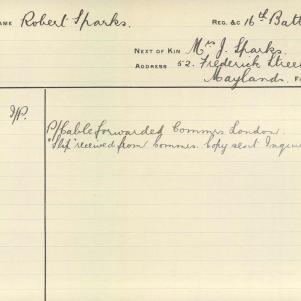 NAME Robert Sparks. REG. &C 16th Batt
NEXT OF KIN Mrs J. Sparks.
ADDRESS 52. Frederick Stree
Maylands.
P/Cable forwarded Commrs London.
"Slip" received from Commrs. Copy sent Inqui